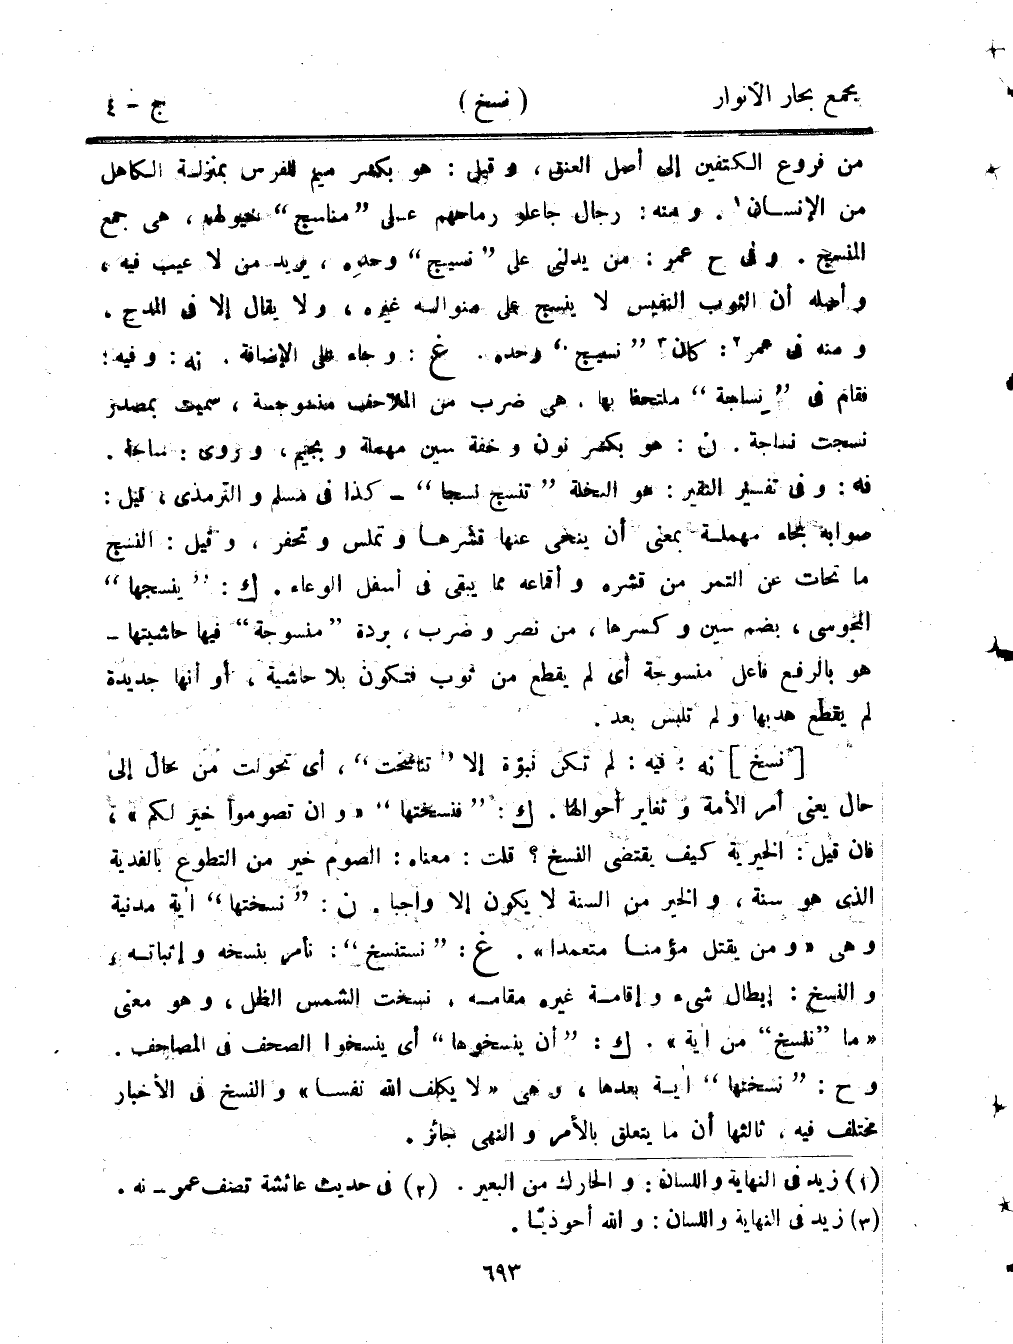 مجمع بحار الأنوار (نسخ) ج - ٤
من فروع الكتفين إلى أصل العنق، و قيل: هو بكسر ميم للفرس بمنزلة الكاهل
من الإنسان١. و منه: رجال جاعلو رماحهم على ”مناسج“ خيولهم، هى جمع
المنسج. و فى ح عمر: من يدلنى على ”نسيج“ وحده، يريد من لا عيب فيه،
و أصله أن الثوب النفيس لا ينسج على منواله غيره، و لا يقال إلا فى المدح.
و منه فى عمر٢: كان٣ ”نسيج“ وحده. غ: و جاء على الإضافة. نه: و فيه:
فقام فى ”نساجة“ ملتحفا بها. هى ضرب من الملاحف منسوجة، سميت بمصدر
نسجت نساجة. ن: هو بكسر نون و خفة سين مهملة و بجيم، و روى: ساجة.
نه: و فى تفسير النقير: هو النخلة ”تنسج نسجا“ ــ كذا فى مسلم و الترمذى، قيل:
صوابه بحاء مهملة بمعنى أن ينحى عنها قشرها و تملس و تحفر، و قيل: النسج
ما تحات عن التمر من قشره و أقماعه مما يبقى فى أسفل الوعاء. ك: ”ينسجها“
المجوسى، بضم سين و كسرها، من نصر و ضرب، بردة ”منسوجة“ فيها حاشيتها ــ
هو بالرفع فاعل منسوجة أى لم يقطع من ثوب فتكون بلا حاشية، أو أنها جديدة
لم يقطع هدبها و لم تلبس بعد.
[نسخ] نه: فيه: لم تكن نبوة إلا ”تناسخت“، أى تحولت من حال إلى
حال يعنى أمر الأمة و تغاير أحوالها. ك: ”فنسختها“ «و ان تصوموا خير لكم»،
فان قيل: الخيرية كيف يقتضى النسخ؟ قلت: معناه: الصوم خير من التطوع بالفدية
الذى هو سنة، و الخير من السنة لا يكون إلا واجبا. ن: ”نسختها“ اٰية مدنية
و هى «و من يقتل مؤمنا متعمدا». غ: ”نستنسخ“: نأمر بنسخه و إثباته،
و النسخ: إبطال شىء و إقامة غيره مقامه، نسخت الشمس الظل، و هو معنى
«ما ”ننسخ“ من اٰية». ك: ”أن ينسخوها“ أى ينسخوا الصحف فى المصاحف.
و ح: ”نسختها“ اٰية بعدها، و هى «لا يكلف الله نفسا» و النسخ فى الأخبار
مختلف فيه، ثالثها أن ما يتعلق بالأمر و النهى جائز.
(١) زيد فى النهاية و اللسان: و الحارك من البعير. (٢) فى حديث عائشة تصف عمر ــ نه.
(٣) زيد فى النهاية و اللسان: و الله أحوذيّا.
٦٩٣